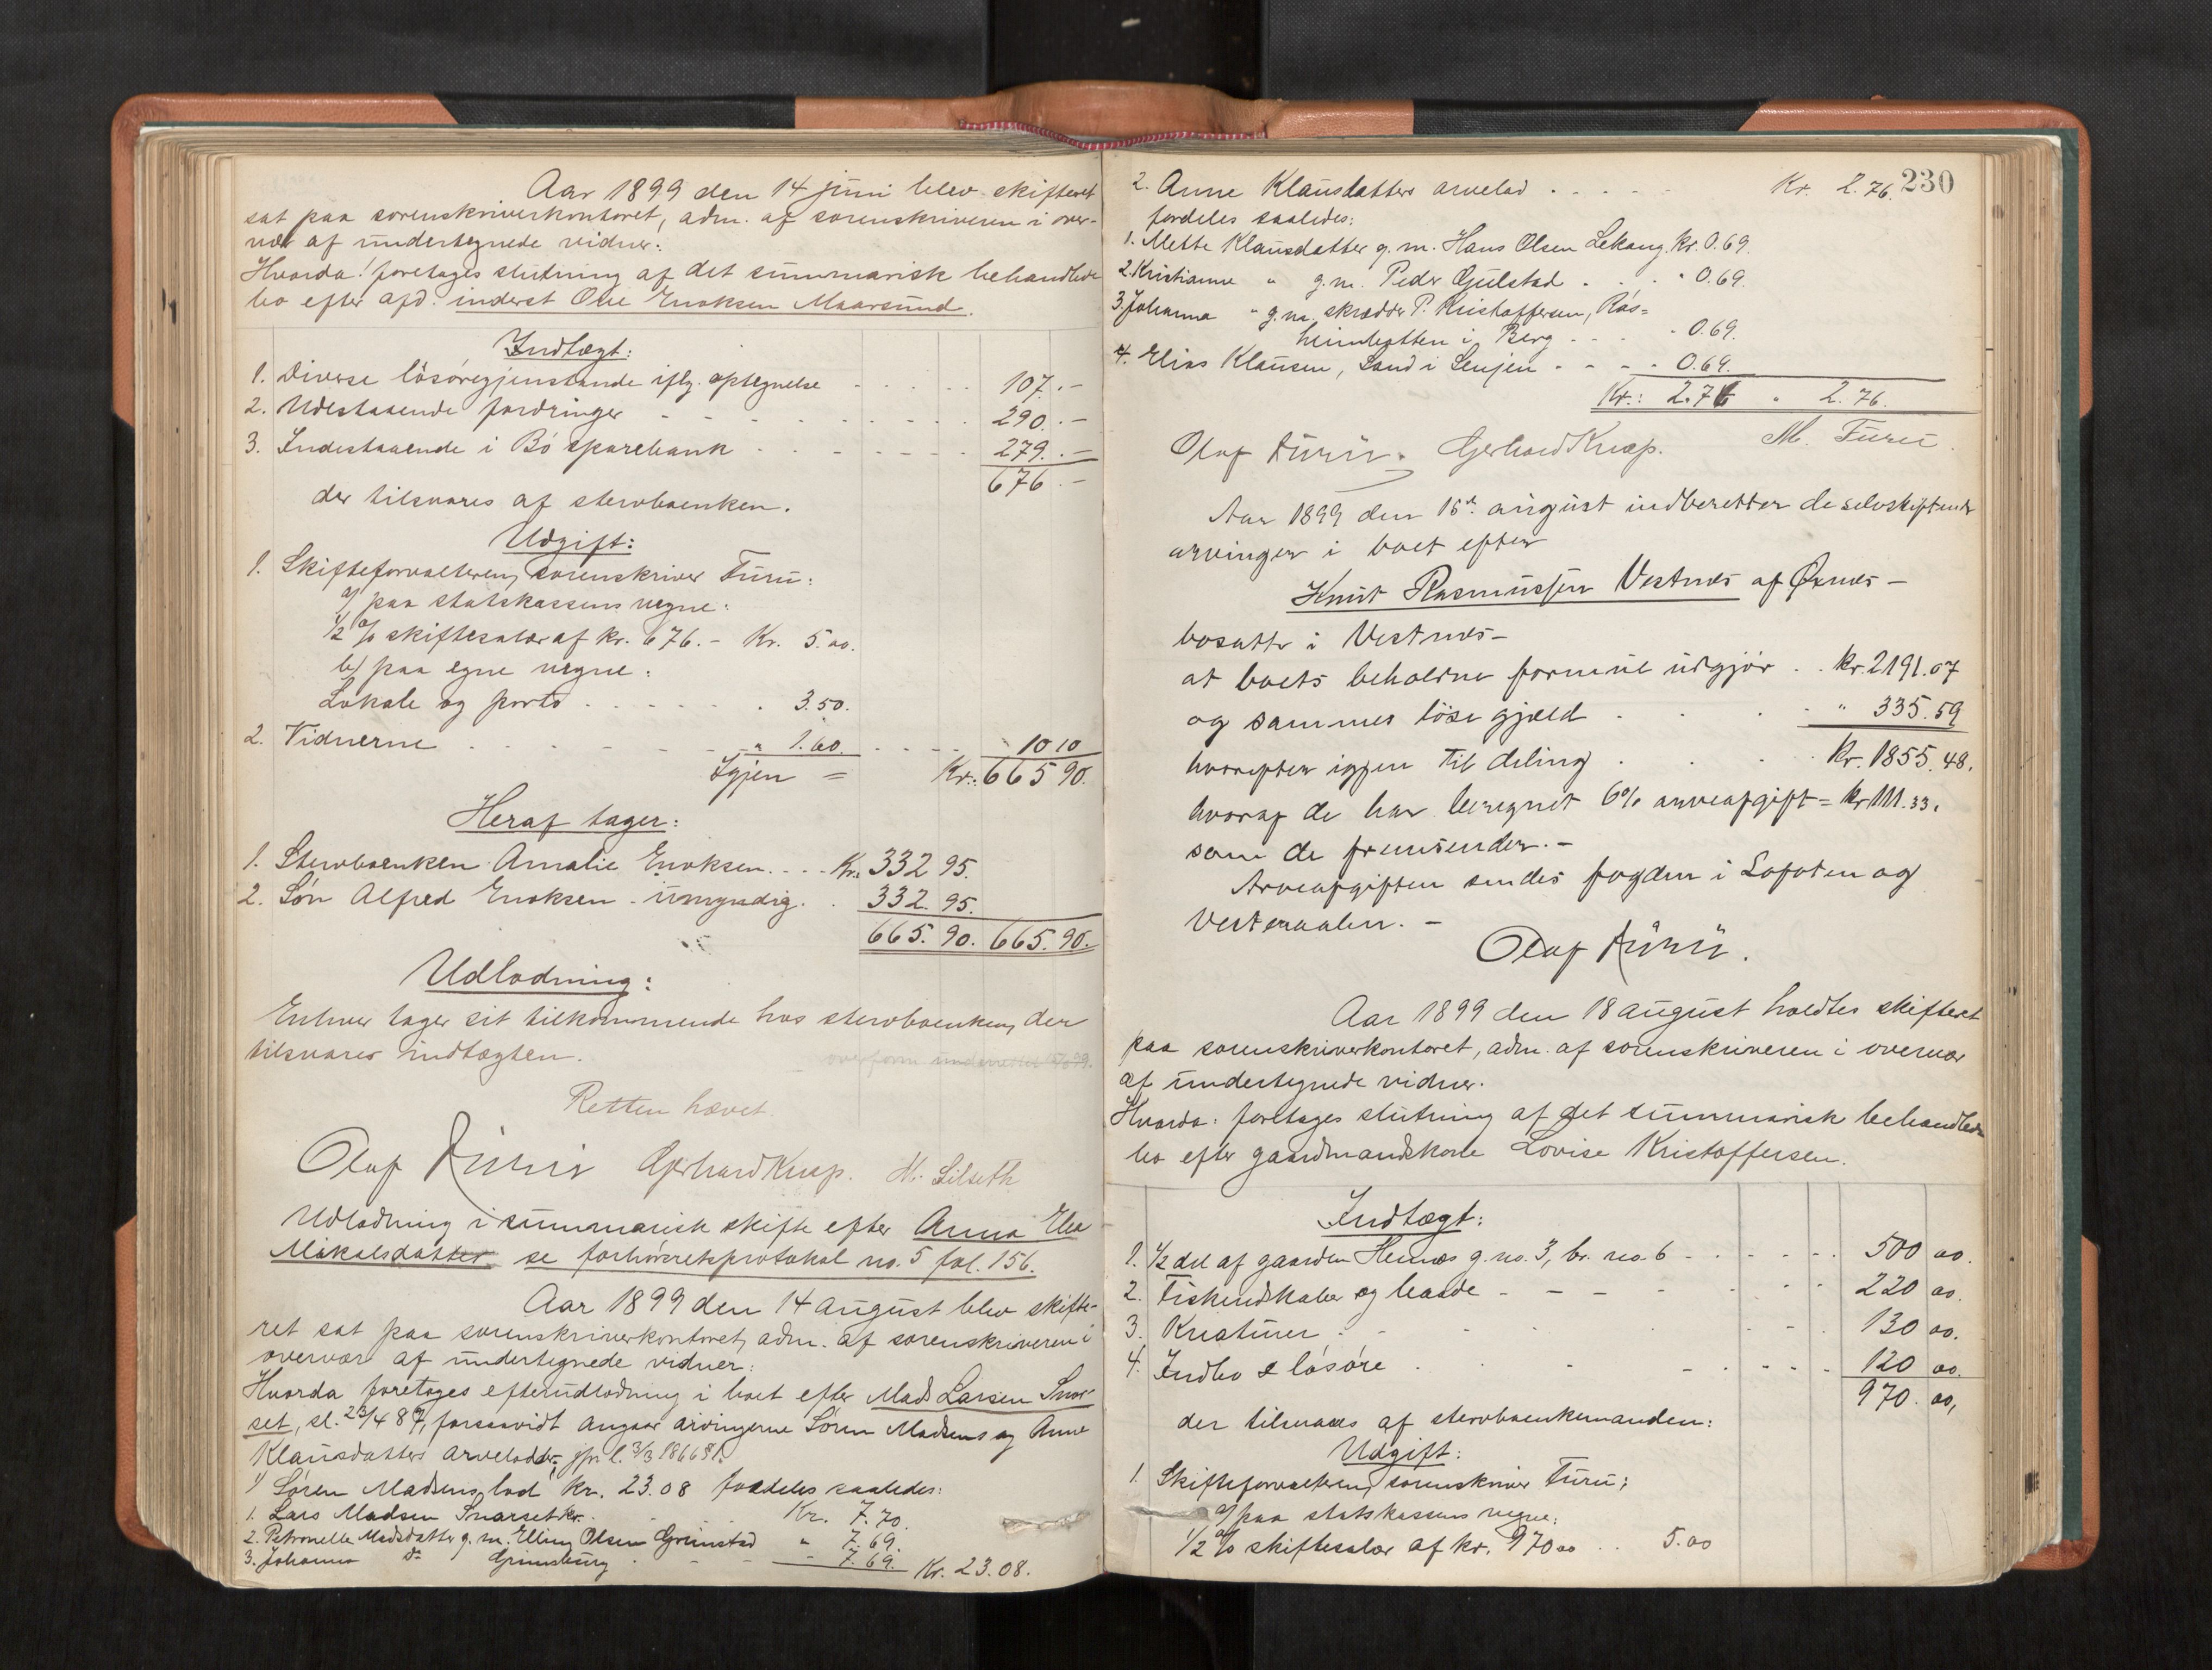 Aar 1899 den 14 juni blev skifteret
sat paa sorenskriverkontoret, adm. af sorenskriveren i over-
vær af undertegnede vidner:
Hvorda: foretages slutning af det summarisk behandlede
bo efter afd. inderst Ole Enoksen Maarsund.
Indtægt:
1. Diverse løsøregjenstande iflg. optegnelse 107.-
2. Udestaaende fordringer 290.-
3. Indestaaende i Bø sparebank 279.-
676.-
der tilsvares af stervboenken.
Udgift:
1. Skifteforvalteren, sorenskriver Furu:
a/ paa statskassens vegne:
1/2 % skiftesalær af kr. 676.- Kr. 5.00.
b/ paa egne vegne:
Lokale og porto 3.50.
2. Vidnerne " 1.60. 10 10
Igjen = Kr.: 665 90.
Heraf tager:
1. Stervboenken Amalie Enoksen. Kr. 332 95.
2. Søn Alfred Enoksen - umyndig. 332. 95.
665. 90. 665. 90.
Udlodning:
Enhver tager sit tilkommende hos stervboenken, der
tilsvarer indtægten.
Retten hævet.
Olaf Furu Gerhard Knap. M. Silseth
Udlodning i summarisk skifte efter Anna Elea
Mikalsdatter se forhørsretsprotokol no. 5 fol. 156.
Aar 1899 den 14 august blev skifte-
ret sat paa sorenskriverkontoret, adm. af sorenskriveren i
overvær af undertegnede vidner:
Hvorda foretages efterudlodning i boet efter Mads Larsen Snar-
set, sl. 23/4 87, forsaavidt angaar arvingerne Søren Madsens og Anne
Klausdatters arvelodder, jfr. l. 3/3 1866 § 1.
1/ Søren Madsens lod kr. 23.08 fordeles saaledes:
1. Lars Madsen Snarset kr. Kr. 7.70.
2. Petronelle Madsdatter g. m. Elling Olsen Grimstad " 7.69.
3. Johanna Do Grimsburg - 7.69. Kr. 23.08.
230
2. Anne Klausdatters arvelod Kr. 2.76.
fordeles saaledes:
1. Mette Klausdatter g. m. Hans Olsen Lekang, kr. 0.69.
2. Kristianne " g. m. Peder Gulstad " 0.69.
3. Johanna " g. m. skrædder P. Kristoffersen, Ras-
heimbotten i Berg " 0.69.
4. Elias Klausen, Sand i Senjen 0.69.
Kr.: 2.76 " 2.76.
Olaf Furu. Gerhard Knap. M. Furu
Aar 1899 den 15de august indberetter de selvskiftende
arvinger i boet efter
Knut Rasmussen Vestnes af Øxnes -
bosatte i Vestnes -
at boets beholdne formue udgjør kr. 2191.07
og sammes løse gjæld " 335.59
hvorefter igjen til deling kr. 1855.48.
hvoraf de har beregnet 6% arveafgift = kr. 111.33.
som de fremsender. -
Arveafgiften sendes fogden i Lofoten og
Vesteraalen. -
Olaf Furu.
Aar 1899 den 18 august holdtes skifteret
paa sorenskriverkontoret, adm. af sorenskriveren i overvær
af undertegnede vidner.
Hvorda: foretages slutning af det summarisk behandlede
bo efter gaardmandskone Lovise Kristoffersen.
Indtægt:
1. 1/2 del af gaarden Hennes g. no. 3, br. no. 6 500 00.
2. Fiskeredskaber og baade 220 00.
3. Kreaturer 130 00.
4. Indbo & løsøre 120 00.
970. 00,
der tilsvares af stervboenkemanden:
Udgift:
1. Skifteforvalteren, sorenskriver Furu:
a/ paa statskassens vegne:
1/2 % skiftesalær af kr. 970 00 5.00